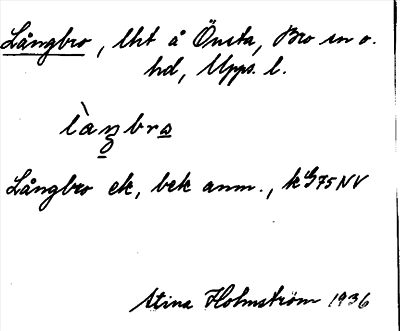 Långbro, lht å Önsta, Bro sn o.
hd, Upps. l.
làŋbro
Långbro ek, bek anm., k G75NV
Stina Holmström 1936